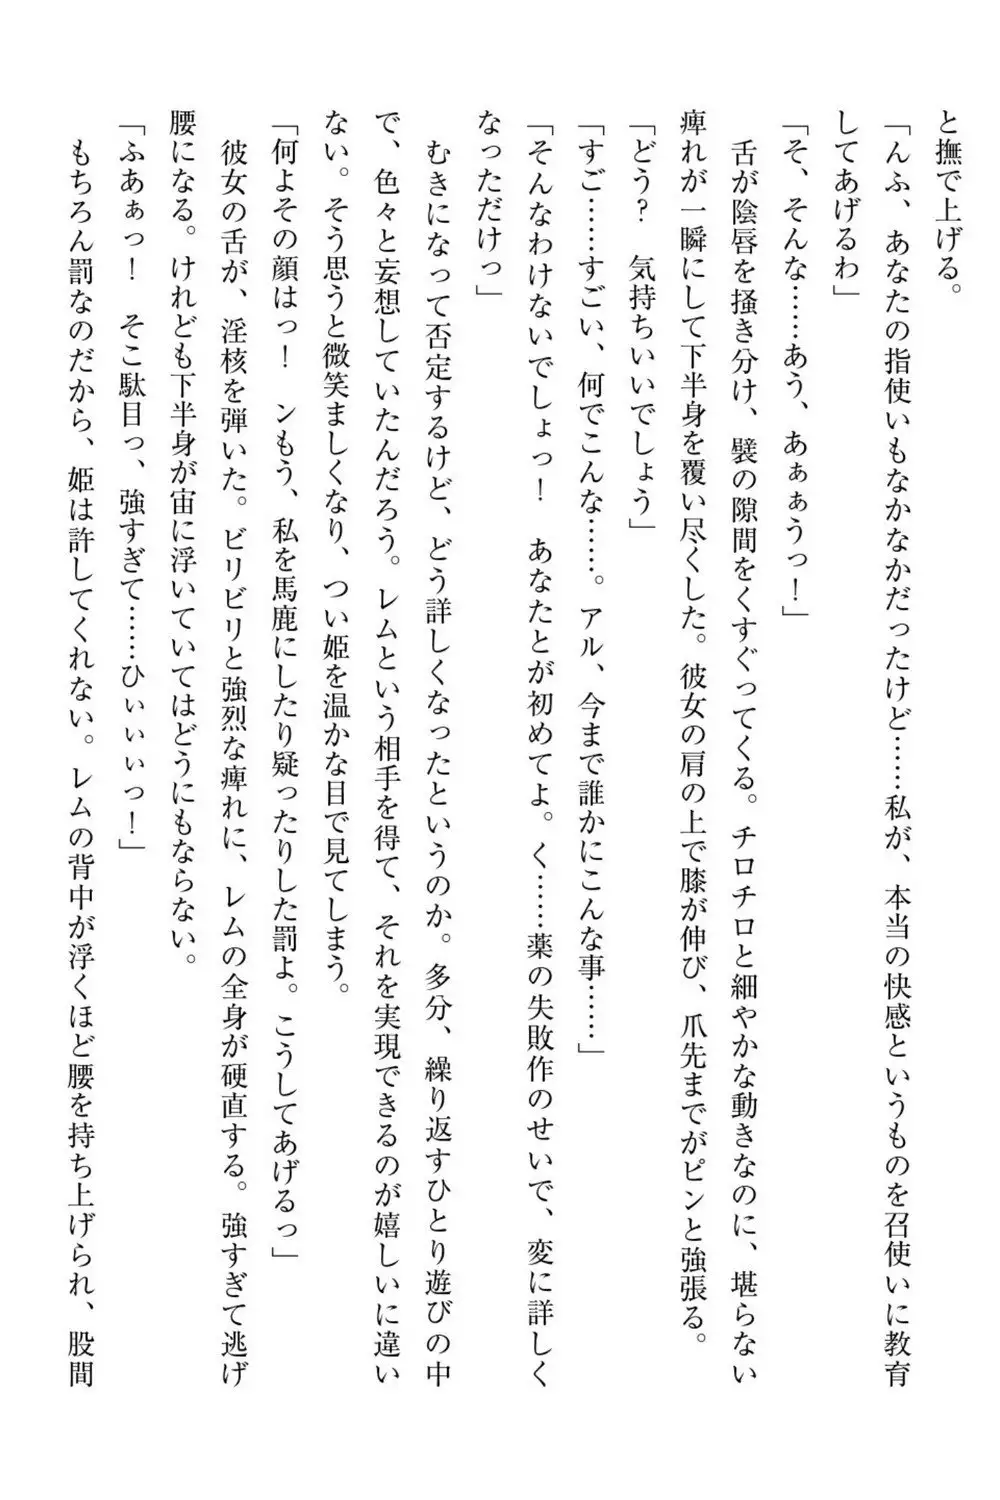 と撫で上げる。
「んふ、あなたの指使いもなかなかだったけど……私が、本当の快感というものを召使いに教育
してあげるわ」
「そ、そんな……あう、あぁぁうっ！」
舌が陰唇を掻き分け、襞の隙間をくすぐってくる。チロチロと細やかな動きなのに、堪らない
痺れが一瞬にして下半身を覆い尽くした。彼女の肩の上で膝が伸び、爪先までがピンと強張る。
「どう？　気持ちいいでしょう」
「すご……すごい、何でこんな……。アル、今まで誰かにこんな事……」
「そんなわけないでしょっ！　あなたとが初めてよ。く……薬の失敗作のせいで、変に詳しく
なっただけっ」
むきになって否定するけど、どう詳しくなったというのか。多分、繰り返すひとり遊びの中
で、色々と妄想していたんだろう。レムという相手を得て、それを実現できるのが嬉しいに違い
ない。そう思うと微笑ましくなり、つい姫を温かな目で見てしまう。
「何よその顔はっ！　ンもう、私を馬鹿にしたり疑ったりした罰よ。こうしてあげるっ」
彼女の舌が、淫核を弾いた。ビリビリと強烈な痺れに、レムの全身が硬直する。強すぎて逃げ
腰になる。けれども下半身が宙に浮いていてはどうにもならない。
「ふあぁっ！　そこ駄目っ、強すぎて……ひぃぃぃっ！」
もちろん罰なのだから、姫は許してくれない。レムの背中が浮くほど腰を持ち上げられ、股間